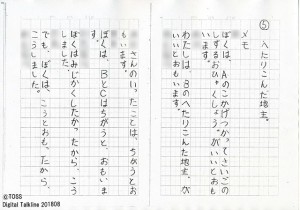 ⑤
へたりこんだ地主。
メモ
ぼくは、Aのこかげつかってさいごの
しずるおひゃくしょう。がいいとおも
います。
わたしは、Bのへたりこんだ地主。が
いいとおもいます。
さんのいったことは、ちがうとお
もいます。
ぼくは、BとCはちがうと、おもいま
す。
ぼくはみじかくしたかったから、こう
しました。
でも、ぼくは、こうとおも。たから、
こうしました。
©TOSS
Digital Talkline 201808